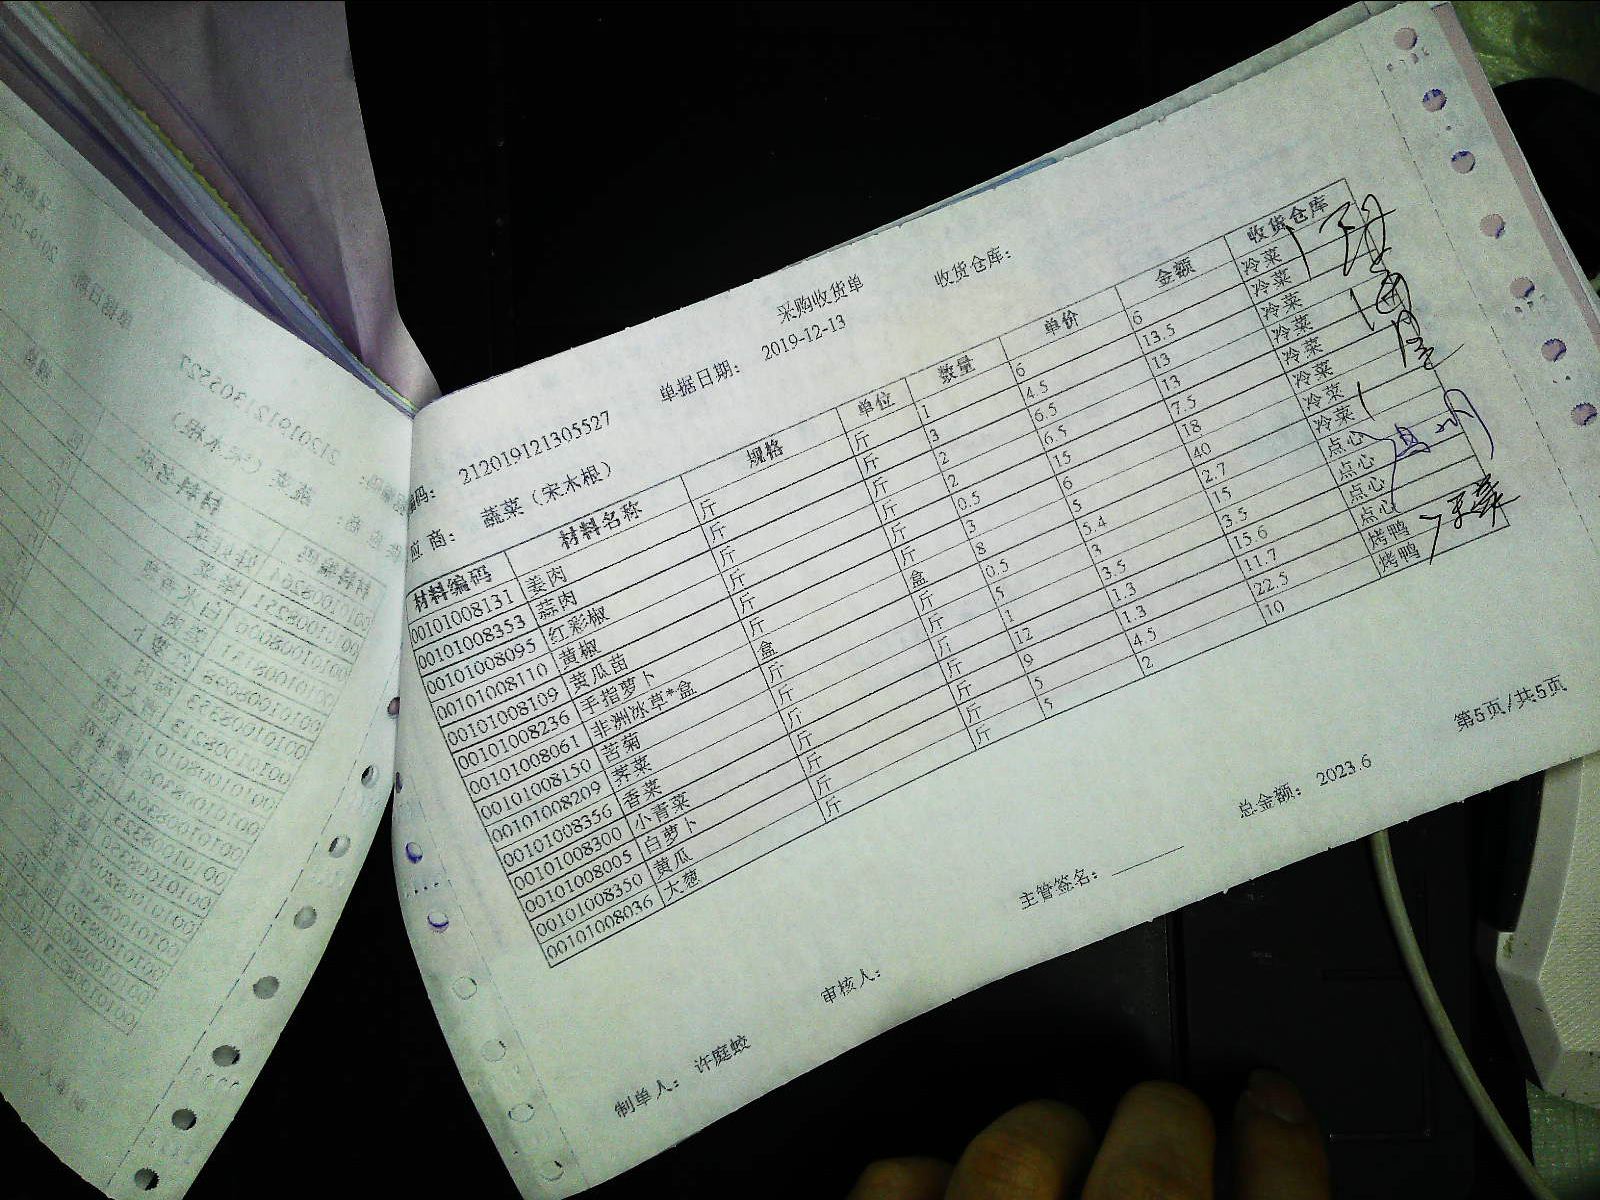 采购收货单
收货仓库：
编码： 212019121305527 单据日期： 2019-12-13
应商： 蔬菜（宋木根）
材料编码 材料名称 规格 单位 数量 单价 金额 收货仓库
00101008131 姜肉 斤 斤 1 6 6 冷菜
00101008353 蒜肉 斤 斤 3 4.5 13.5 冷菜
00101008095 红彩椒 斤 斤 2 6.5 13 冷菜
00101008110 黄椒 斤 斤 2 6.5 13 冷菜
00101008109 黄瓜苗 斤 斤 0.5 15 7.5 冷菜
00101008236 手指萝卜 斤 斤 3 6 18 冷菜
00101008061 非洲冰草*盒 盒 盒 8 5 40 冷菜
00101008150 苦菊 斤 斤 0.5 5.4 2.7 冷菜
00101008209 荠菜 斤 斤 5 3 15 点心
00101008356 香菜 斤 斤 1 3.5 3.5 点心
00101008300 小青菜 斤 斤 12 1.3 15.6 点心
00101008005 白萝卜 斤 斤 9 1.3 11.7 点心
00101008350 黄瓜 斤 斤 5 4.5 22.5 烤鸭
00101008036 大葱 斤 斤 5 2 10 烤鸭
第5页/共5页
总金额： 2023.6
主管签名：
审核人：
制单人： 许庭蛟